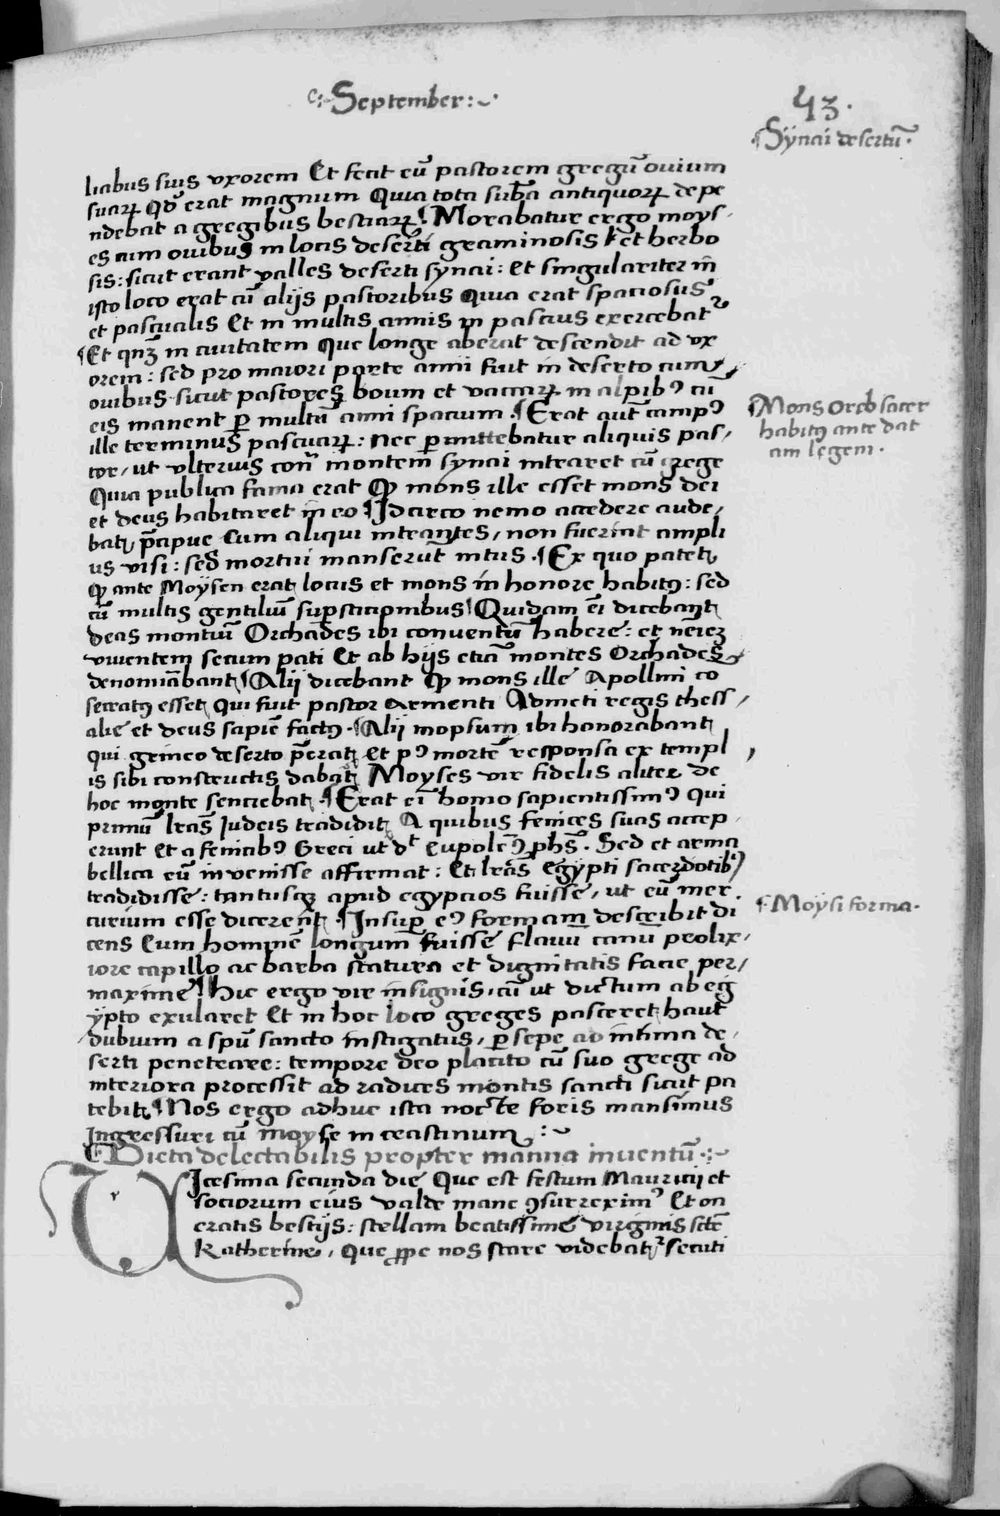 September
43.
Synai desertū.
liabus suis vxorem Et fecit eū pastorem gregū ovium
suaꝝ qd̄ erat magnum Quia tota sub̄a antiquoꝝ depe
ndebat a gregibus bestiaꝝ ¶ Morabatur ergo moys
es cum ovibus in locis deserti graminosis et herbo
sis: sicut erant valles deserti synai: et singulariter in
isto loco erat cū alijs pastoribus Quia erat spaciosus
et pascualis Et in multis annis in pascuis exercebatr
¶ Et qnꝫ in civitatem que longe aberat descendit ad vx
orem: sed pro maiori parte anni fuit in deserto cum
ovibus sicut pastores boum et vaccaꝝ in alpibꝰ cū
eis manent ꝑ multū anni spacium. ¶ Erat aūt campꝰ
ille terminus pascuaꝝ: nec ꝑmittebatur aliquis pas,
tor, ut vlterius con̄ montem synai intraret cū grege
Quia publica fama erat ꝙ mons ille esset mons dei
et deus habitaret in eo ¶ Idcirco nemo accedere aude,
bat p̄cipue Cum aliqui intrantes, non fuerint ampli
us visi: sed mortui manserūt intus. ¶ Ex quo patet
ꝙ ante Moysen erat locus et mons in honore habitꝰ: sed
cū multis gentiliū suꝑsticionibus ¶ Quidam ei dicebant
deas montiū Orchades ibi conventū habere: et nēiez
viventem secum pati Et ab hijs etiā montes Orchades
denomiābant ¶ Alij dicebant ꝙ mons ille Apollini co
secratꝰ esset qui fuit pastor armenti Admeti regis thess,
alie et deus sapiē factꝰ. ¶ Alij mopsum ibi honorabant
qui grineo deserto p̄erat et pꝰ mortē responsa ex templ,
is sibi constructis dabat Moyses vir fidelis aliter de
hoc monte senciebat. ¶ Erat ei homo sapientissimꝰ qui
primū lr̄as Iudeis tradidit A quibus fenices suas accep,
erunt Et a fenicibꝰ Greci ut dt Eupolēꝰ ph̄s. Sed et arma
bellica eū invenisse affirmat: Et lr̄as Egypti sacerdotibꝰ
tradidisse: tantusqꝫ apud egypcios fuisse, ut eū mer,
curium esse dicerent. ¶ Insuꝑ eꝰ formam describit di
cens Eum hominē longum fuisse flavū canū prolix,
iore capillo ac barba statura et dignitatis facie per,
maxime ¶ Hic ergo vir insignis, cū ut dictum ab eg
ypto exularet Et in hoc loco greges pasceret haut
dubium a spū sancto instigatus, ꝑsepe ad intima de,
serti penetrare: tempore deo placito cū suo grege ad
interiora processit ad radices montis sancti sicut pa
tebit ¶ Nos ergo adhuc ista nocte foris mansimus
Ingressuri cū moyse in crastinum :~
Mons Oreb sacer
habitꝰ ante dat
am legem.
¶ Moysi forma.
Dieta delectabilis propter manna inventū
VIcesima secunda die Que est festum Mauricij et
sociorum eius valde mane ꝯsurreximꝰ Et on
eratis bestijs: stellam beatissime virginis scte
Katherine, que ꝓpe nos stare videbatr secuti